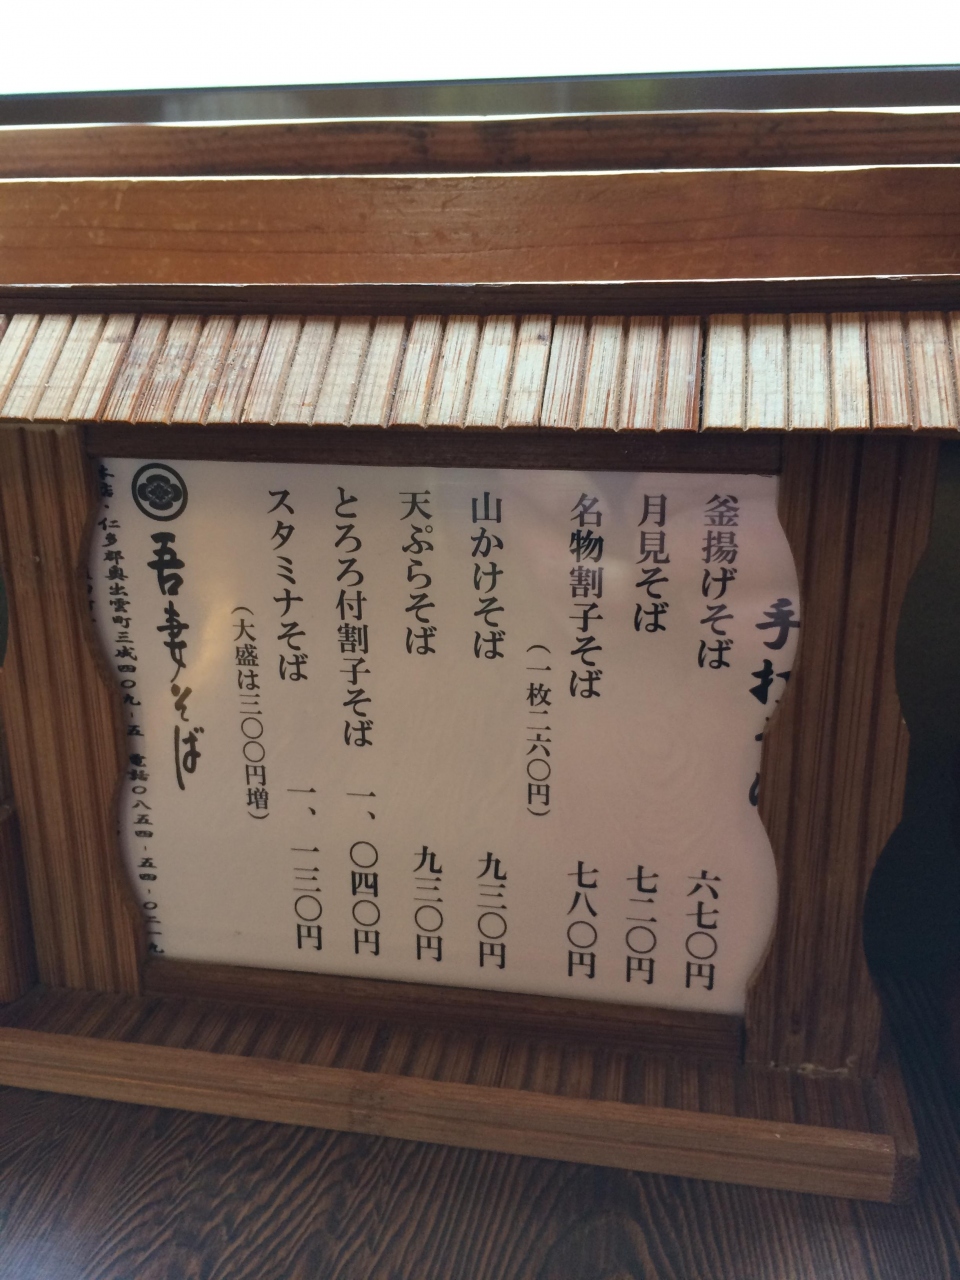 手打
釜揚げそば 六七〇円
月見そば 七二〇円
名物割子そば 七八〇円
（一枚二六〇円）
山かけそば 九三〇円
天ぷらそば 九三〇円
とろろ付割子そば 一、〇四〇円
スタミナそば 一、一三〇円
（大盛は三〇〇円増）
吾妻そば
本店、仁多郡奥出雲町三成四〇九-五 電話〇八五四-五四-〇二一九